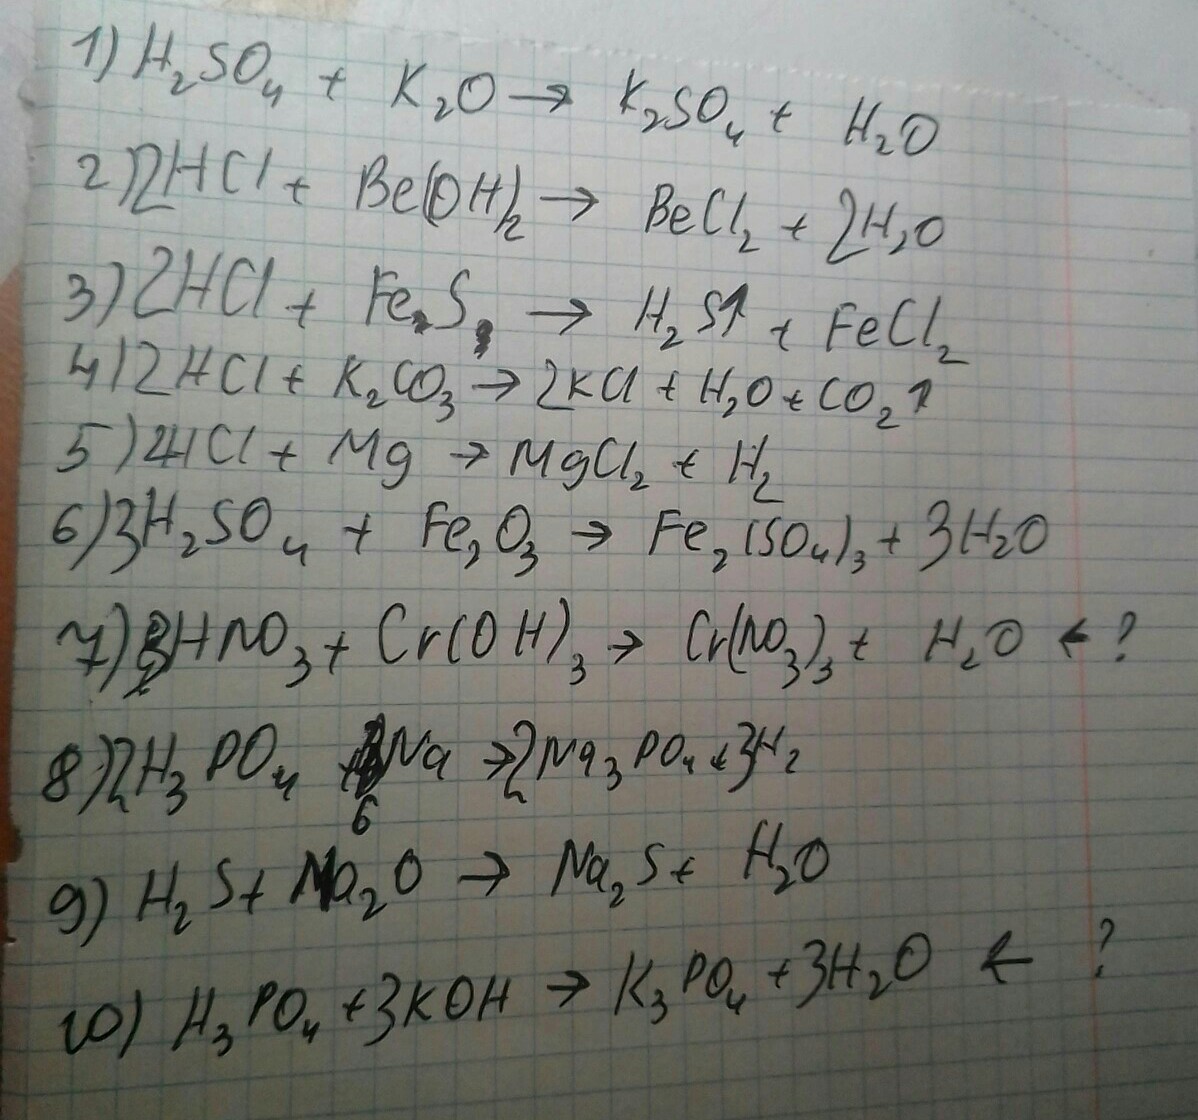 1) H₂SO₄ + K₂O → K₂SO₄ + H₂O
2) 2HCl + Be(OH)₂ → BeCl₂ + 2H₂O
3) 2HCl + FeS → H₂S↑ + FeCl₂
4) 2HCl + K₂CO₃ → 2KCl + H₂O + CO₂↑
5) 2HCl + Mg → MgCl₂ + H₂
6) 3H₂SO₄ + Fe₂O₃ → Fe₂(SO₄)₃ + 3H₂O
7) HNO₃ + Cr(OH)₃ → Cr(NO₃)₃ + H₂O ← ?
8) 2H₃PO₄ + 6Na → 2Na₃PO₄ + 3H₂
9) H₂S + Na₂O → Na₂S + H₂O
10) H₃PO₄ + 3KOH → K₃PO₄ + 3H₂O ← ?